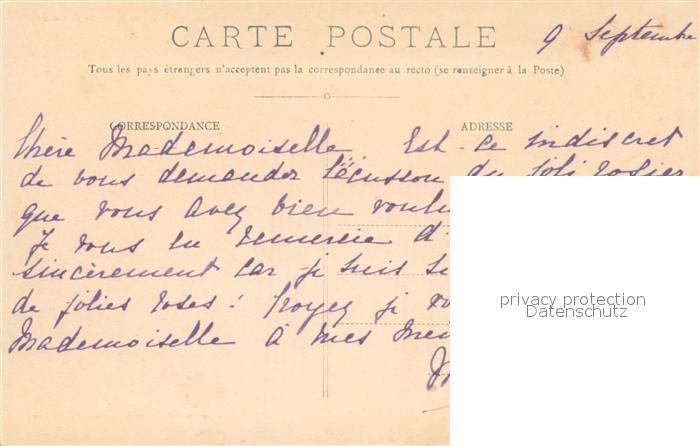 CARTE POSTALE
9 Septembre
Tous les pays étrangers n'acceptent pas la correspondance au recto (se renseigner à la Poste)
CORRESPONDANCE
ADRESSE
Chère Mademoiselle, Est-ce indiscret
de vous demander l'écusson du joli rosier
que vous avez bien voulu
Je vous en remercie d'
sincèrement car je suis
de jolies roses! Croyez je
Mademoiselle à mes
privacy protection
Datenschutz